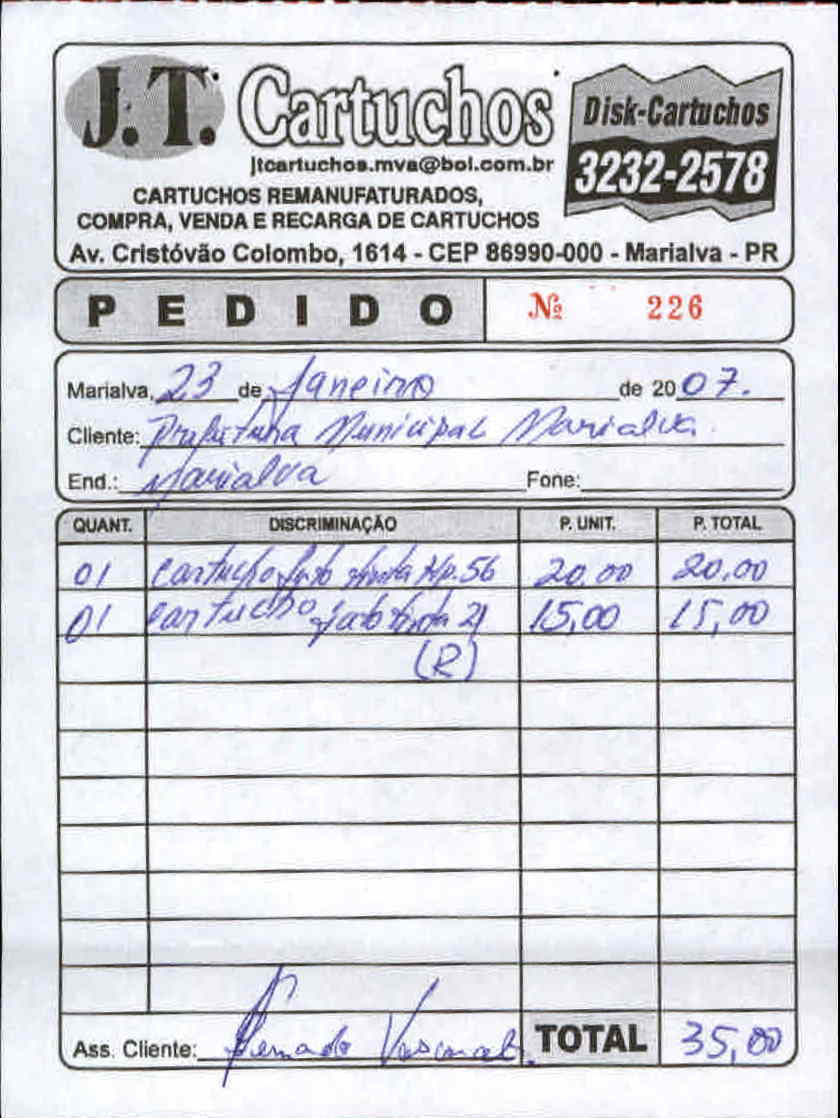 J.T. Cartuchos
jtcartuchos.mva@bol.com.br
CARTUCHOS REMANUFATURADOS,
COMPRA, VENDA E RECARGA DE CARTUCHOS
Disk-Cartuchos
3232-2578
Av. Cristóvão Colombo, 1614 - CEP 86990-000 - Marialva - PR
PEDIDO Nº 226
Marialva, 23 de Janeiro de 2007.
Cliente: Prefeitura Municipal Marialva.
End.: Marialva Fone:
QUANT. DISCRIMINAÇÃO P. UNIT. P. TOTAL
01 Cartucho Jato tinta Hp.56 20,00 20,00
01 Cartucho jato tinta 21 15,00 15,00
(R)
Ass. Cliente: TOTAL 35,00